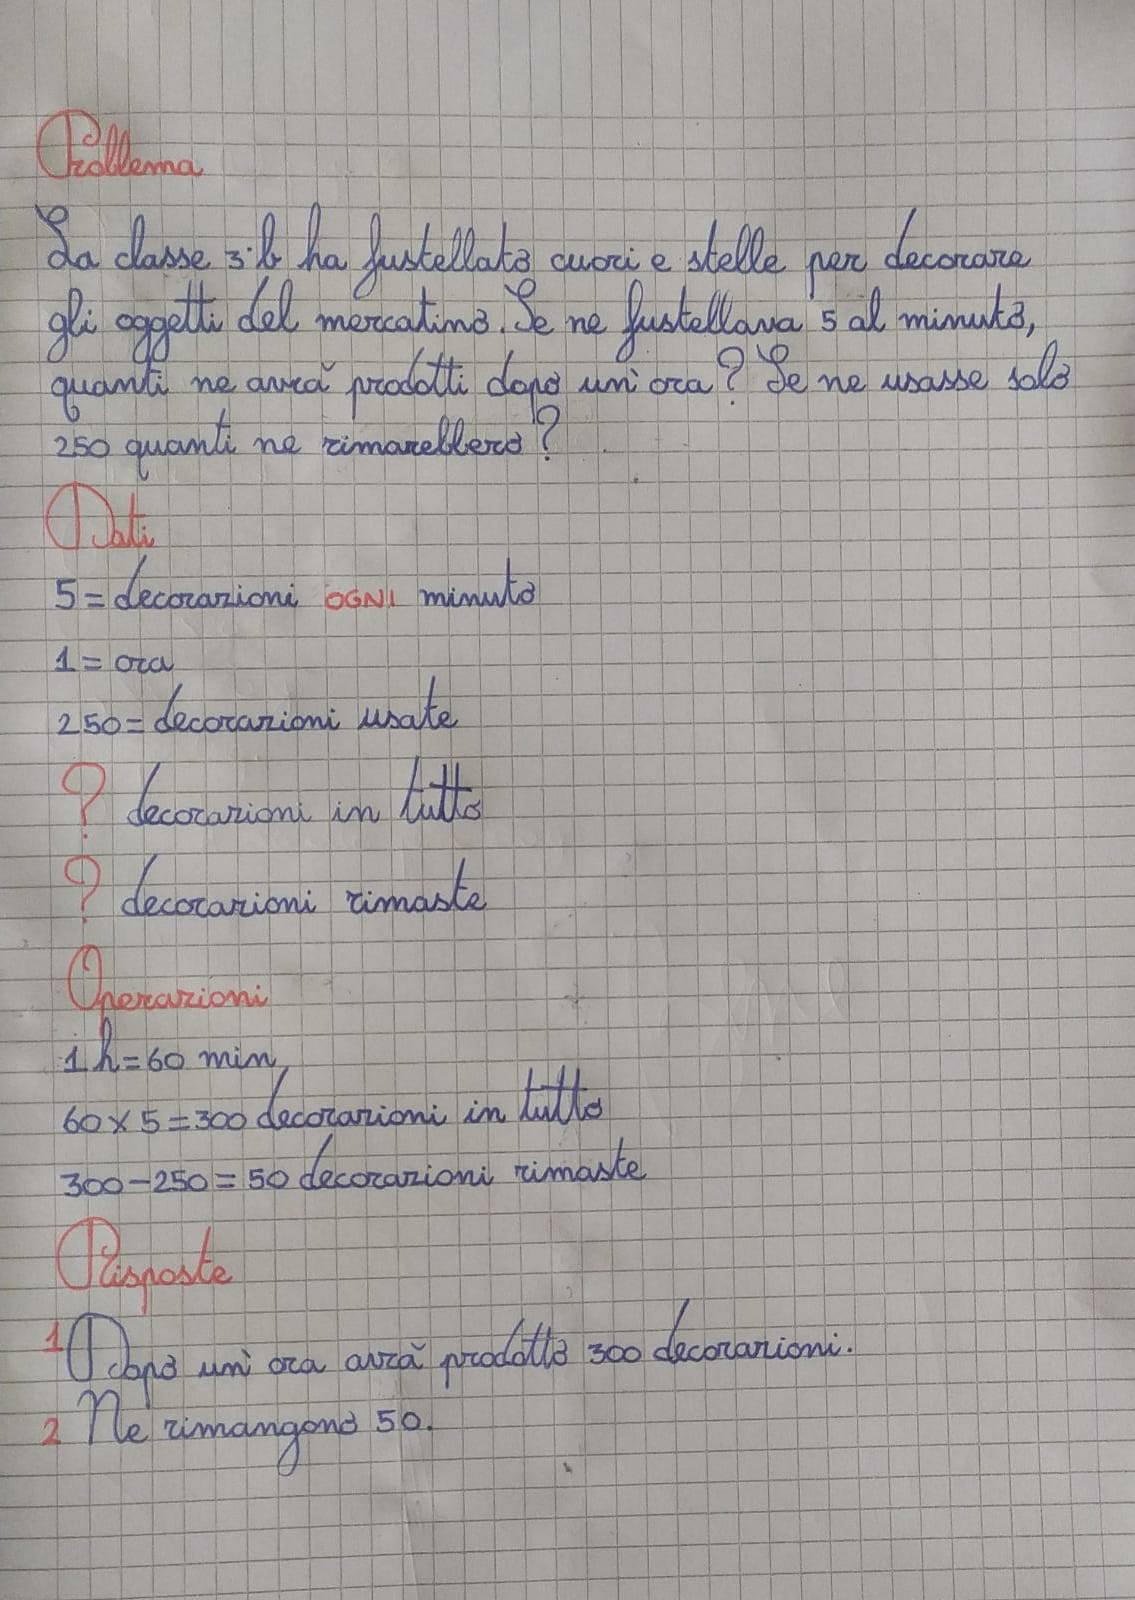 Problema
La classe 3°b ha fustellato cuori e stelle per decorare
gli oggetti del mercatino. Se ne fustellava 5 al minuto,
quanti ne avrà prodotti dopo un'ora? Se ne usasse solo
250 quanti ne rimarebbero?
Dati
5= decorazioni OGNI minuto
1= ora
250= decorazioni usate
? decorazioni in tutto
? decorazioni rimaste
Operazioni
1 h=60 min
60×5=300 decorazioni in tutto
300-250=50 decorazioni rimaste
Risposte
1 Dopo un'ora avrà prodotto 300 decorazioni.
2 Ne rimangono 50.